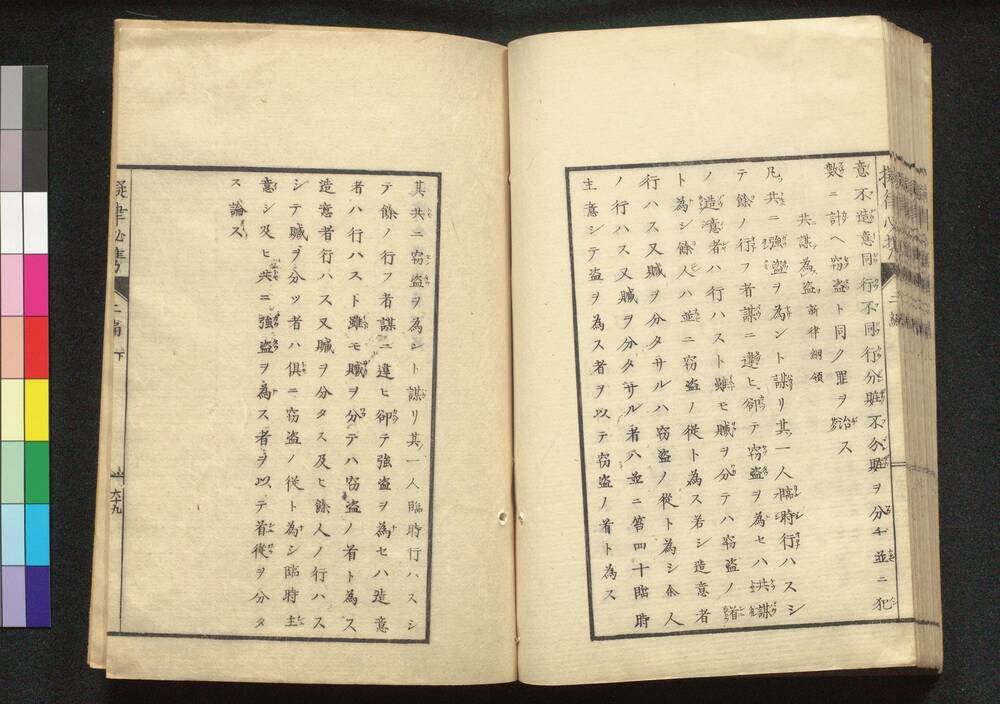 意不造意同行不同行分贓不分贓ヲ分チ並ニ犯
數ニ計ヘ窃盗ト同ク罪ヲ治ス
共謀為盗 新律綱領
凡共ニ強盗ヲ為ント謀リ其一人臨時行ハスシ
テ餘ノ行フ者謀ニ違ヒ卻テ窃盗ヲ為セハ共謀
ノ造意者ハ行ハスト雖モ贓ヲ分テハ窃盗ノ首
ト為シ餘人ハ並ニ窃盗ノ從ト為ス若シ造意者
行ハス又贓ヲ分タサルハ窃盗ノ從ト為シ余人
ノ行ハス又贓ヲ分タサル者ハ並ニ笞四十臨時
主意シテ盗ヲ為ス者ヲ以テ窃盗ノ首ト為ス
其共ニ窃盗ヲ為シト謀リ其一人臨時行ハスシ
テ餘ノ行フ者謀ニ違ヒ卻テ強盗ヲ為セハ造意
者ハ行ハスト雖モ贓ヲ分テハ窃盗ノ首ト為ス
造意者行ハス又贓ヲ分タス及ヒ餘人ノ行ハス
シテ贓ヲ分ツ者ハ俱ニ窃盗ノ從ト為シ臨時主
意シ及ヒ共ニ強盗ヲ為ス者ヲ以テ首從ヲ分タ
ス論ス
六十九